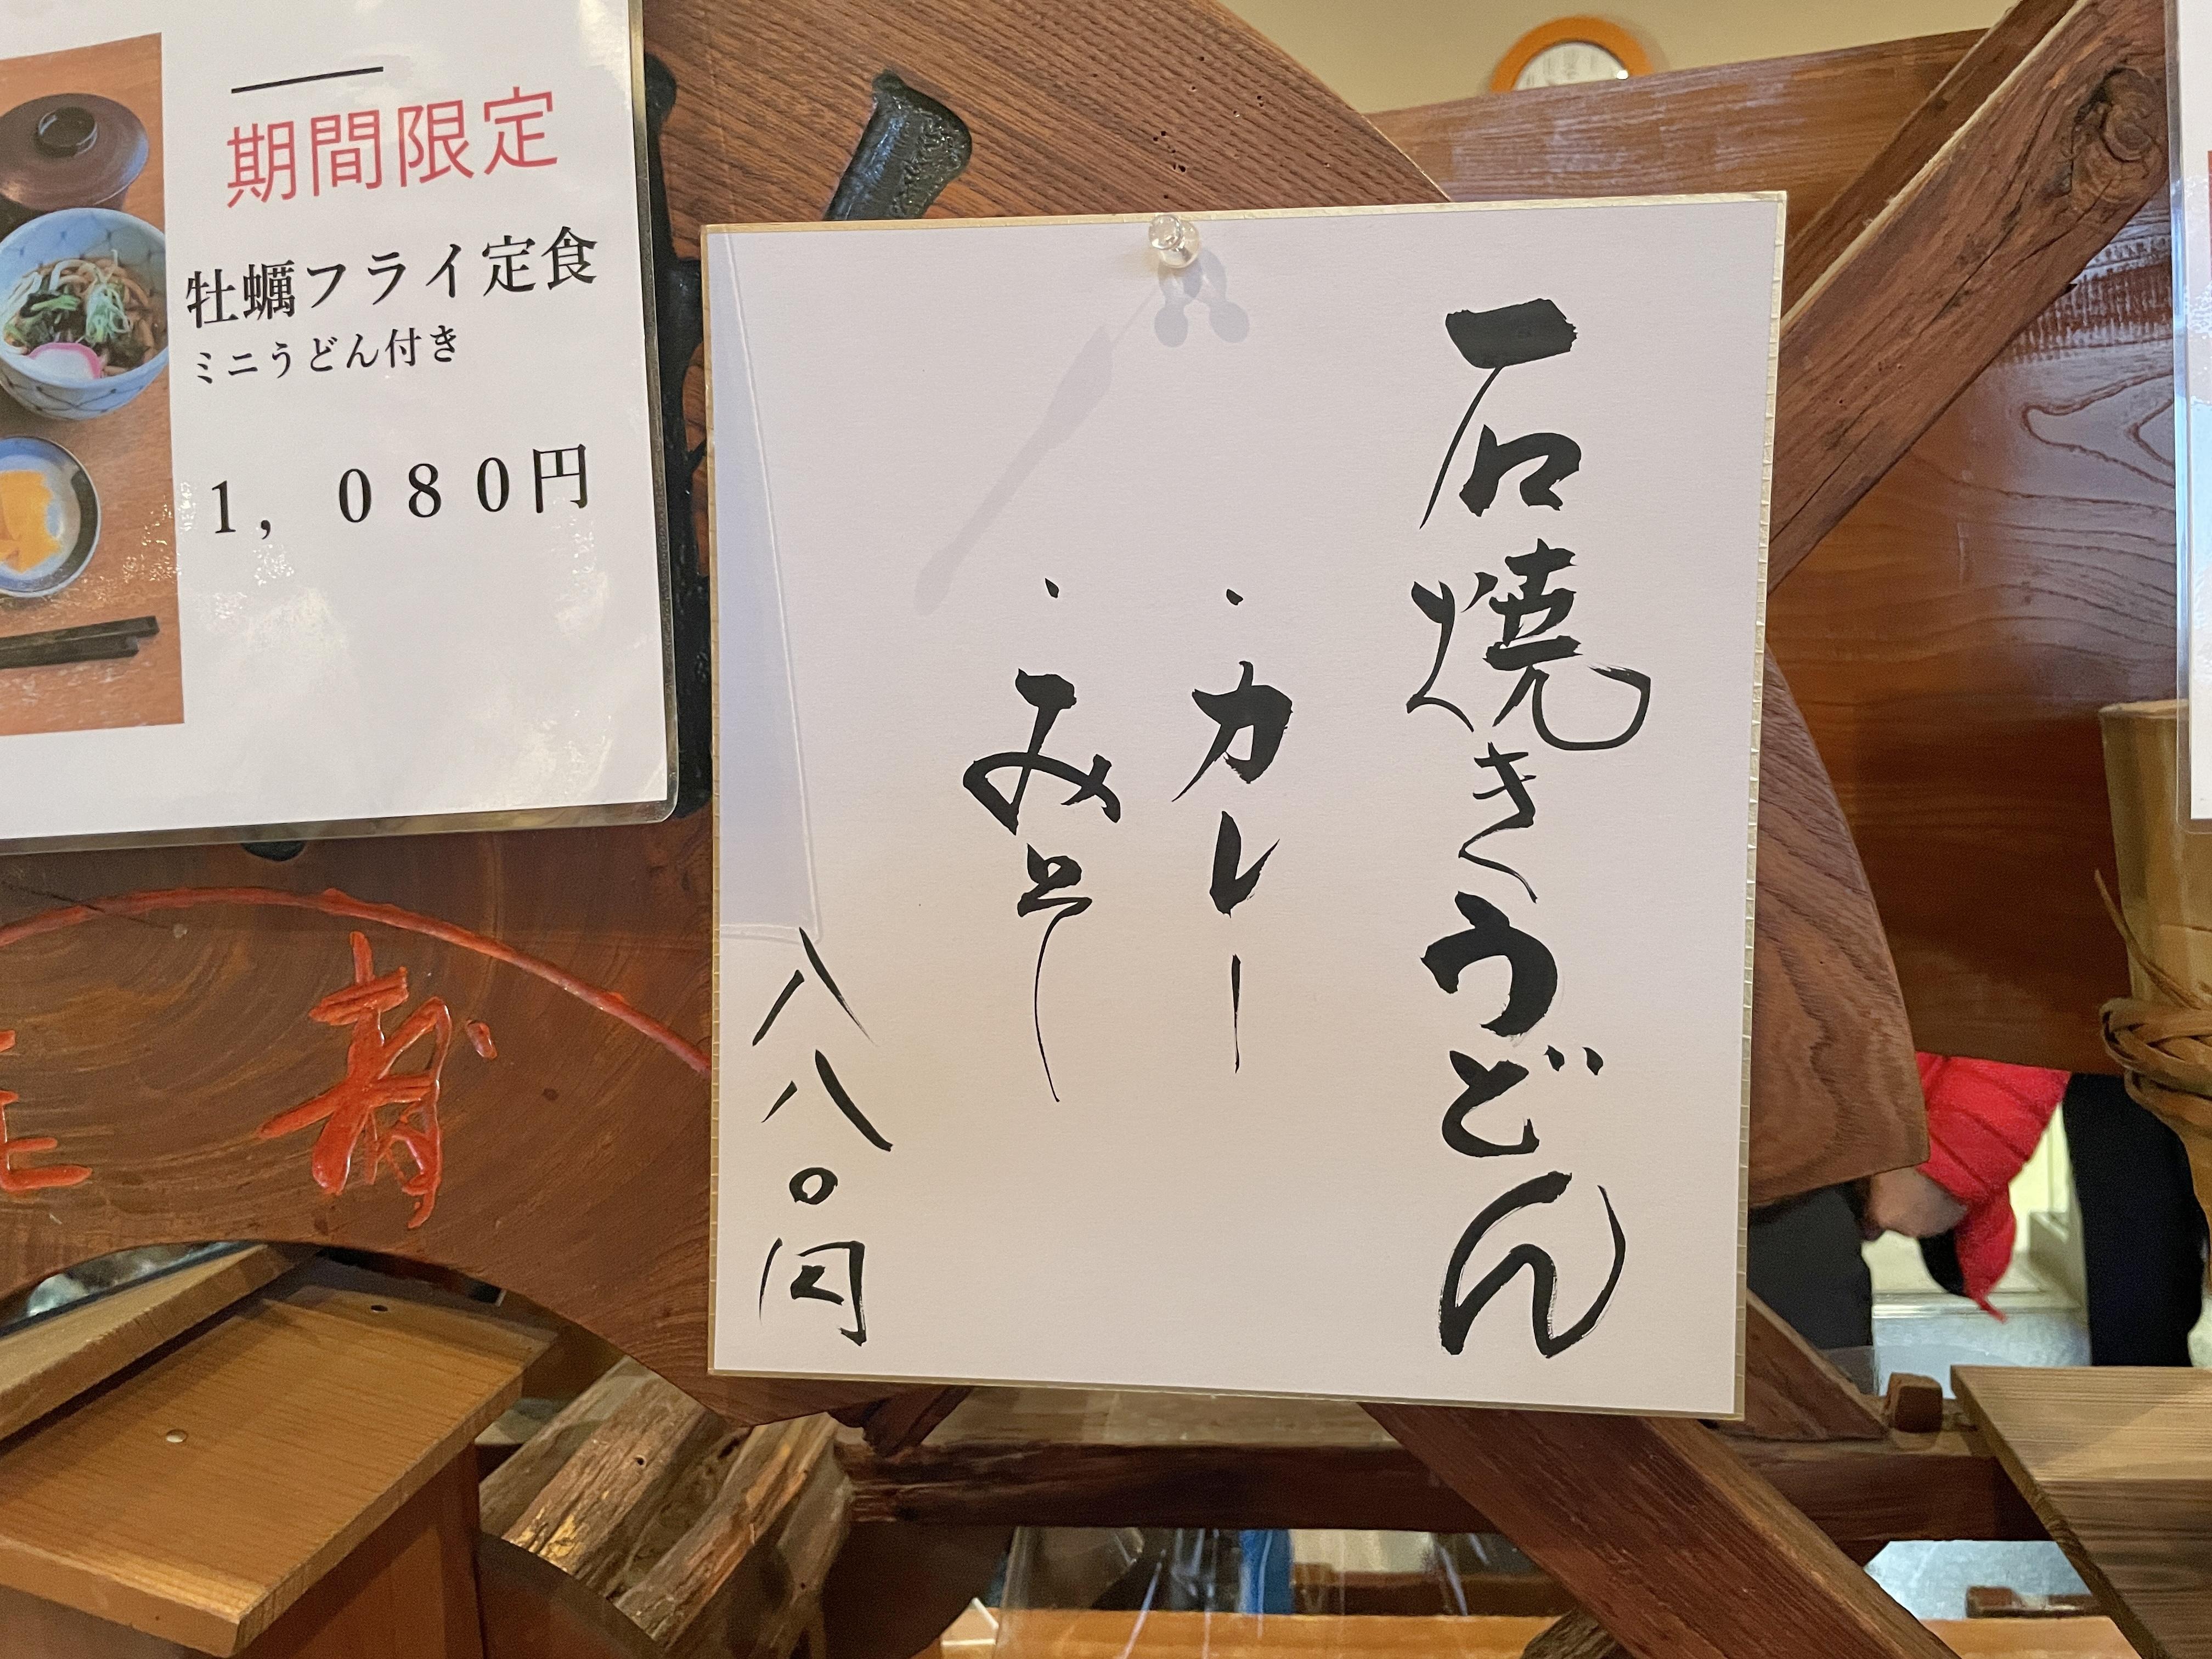 期間限定
牡蠣フライ定食
ミニうどん付き
1，080円
石焼きうどん
・カレー
・みそ
八八〇円
寿